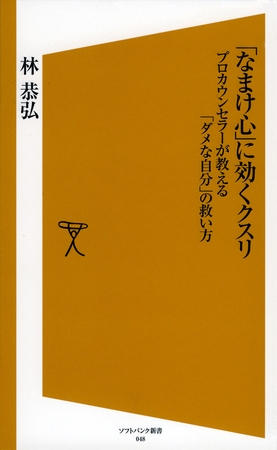 「なまけ心」に効くクスリ
プロカウンセラーが教える
「ダメな自分」の救い方
林 恭弘
ソフトバンク新書
048